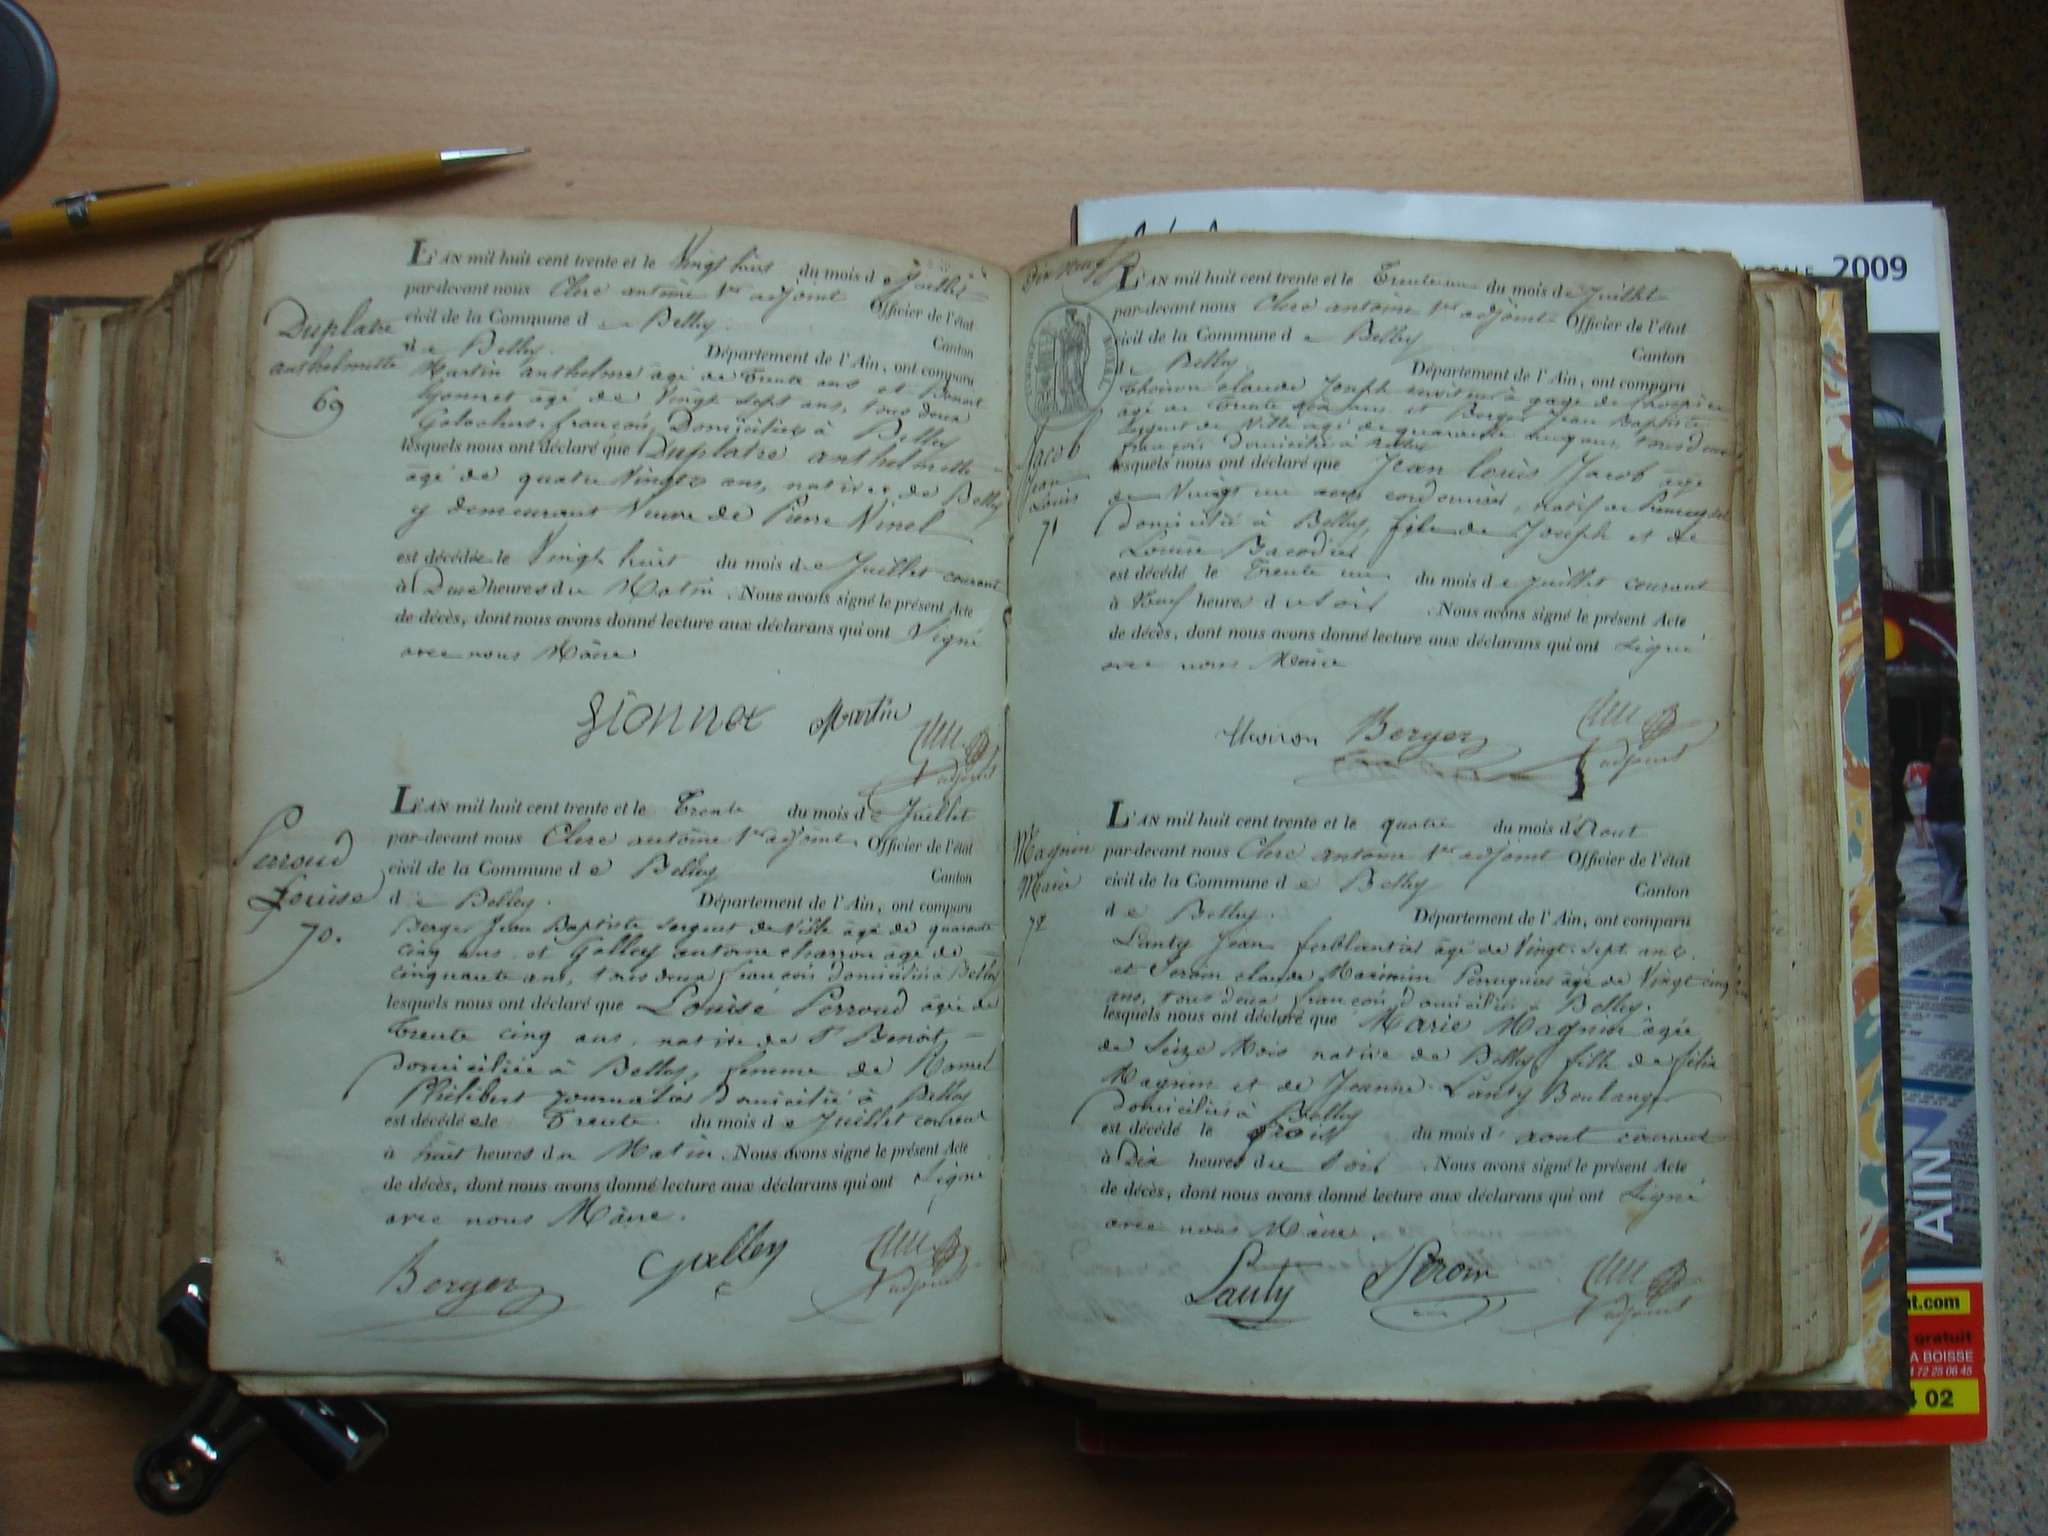 L'AN mil huit cent trente et le Vingt huit du mois de Juillet
par-devant nous Clerc antoine 1er adjoint Officier de l'état
civil de la Commune de Belley. Canton
de Belley. Département de l'Ain, ont comparu
Duplatre
anthelmette
69
Martin anthelme âgé de Trente ans et Benoit
Gjonnet âgé de Vingt sept ans, tous deux
français, Domiciliés à Belley
lesquels nous ont déclaré que Duplatre anthelmette
âgé de quatre Vingts ans, native de Belley
y demeurant Veuve de Pierre Ninet
est décédée le Vingt huit du mois de Juillet courant
à Deux heures du Matin. Nous avons signé le présent Acte
de décès, dont nous avons donné lecture aux déclarans qui ont Signé
avec nous Maire
Gionnet Martin
adjoint
L'AN mil huit cent trente et le Trente du mois de Juillet
par-devant nous Clerc antoine 1er adjoint Officier de l'état
civil de la Commune de Belley Canton
de Belley. Département de l'Ain, ont comparu
Perroud
Louise
70.
Berger Jean Baptiste sergent de Ville âgé de quarante
cinq ans et Galley antoine charron âgé de
cinquante ans, tous deux français domiciliés à Belley
lesquels nous ont déclaré que Louise Perroud âgée de
Trente cinq ans, native de St Benoit
Domiciliée à Belley, femme de
Philibert journalier Domicilié à Belley
est décédée le Trente du mois de Juillet courant
à huit heures du Matin. Nous avons signé le présent Acte
de décès, dont nous avons donné lecture aux déclarans qui ont Signé
avec nous Maire.
Berger Galley
adjoint
Dix neuf
L'AN mil huit cent trente et le Trente un du mois de Juillet
par-devant nous Clerc antoine 1er adjoint Officier de l'état
civil de la Commune de Belley Canton
de Belley Département de l'Ain, ont comparu
Jacob
Jean
Louis
71
Thoiron claude Joseph à gage de l'hospice
âgé de Trente ans et Berger Jean Baptiste
sergent de Ville âgé de quarante cinq ans, tous deux
français Domiciliés à Belley
lesquels nous ont déclaré que Jean Louis Jacob âgé
de Vingt un ans cordonnier, natif de
Domicilié à Belley, fils de Joseph et de
Louise
est décédé le Trente un du mois de Juillet courant
à Neuf heures du soir. Nous avons signé le présent Acte
de décès, dont nous avons donné lecture aux déclarans qui ont Signé
avec nous Maire
Thoiron Berger
adjoint
L'AN mil huit cent trente et le quatre du mois d'Aout
par-devant nous Clerc antoine 1er adjoint Officier de l'état
civil de la Commune de Belley Canton
de Belley. Département de l'Ain, ont comparu
Magnin
Marie
72
Lanty Jean ferblantier âgé de Vingt-sept ans.
et Seroin claude Maximin Perruquier âgé de Vingt cinq
ans, tous deux français domiciliés à Belley.
lesquels nous ont déclaré que Marie Magnin âgée
de Seize Mois native de Belley fille de
Magnin et de Jeanne Lanty Boulanger
Domiciliés à Belley
est décédé le trois du mois d'aout courant
à Dix heures du soir. Nous avons signé le présent Acte
de décès, dont nous avons donné lecture aux déclarans qui ont Signé
avec nous Maire.
Lanty Seroin
adjoint
2009
AIN
nt.com
gratuit
A BOISSE
72 25 06 45
02